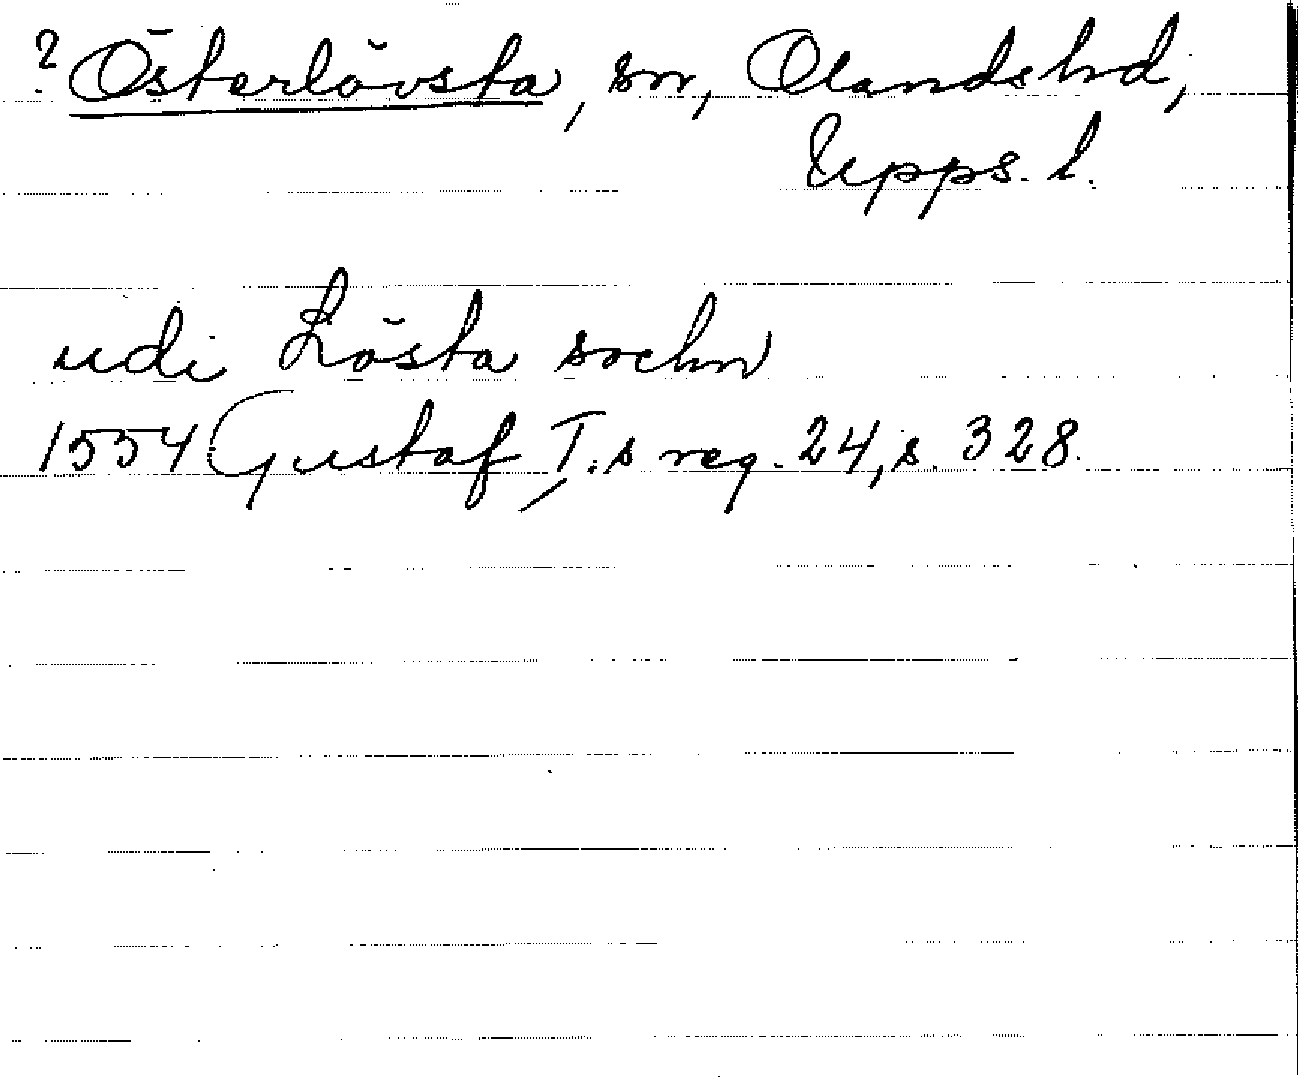 ? Österlövsta, sn, Olands hd,
Upps. l.
udi Lösta sochn
1554 Gustaf I:s reg. 24, s. 328.